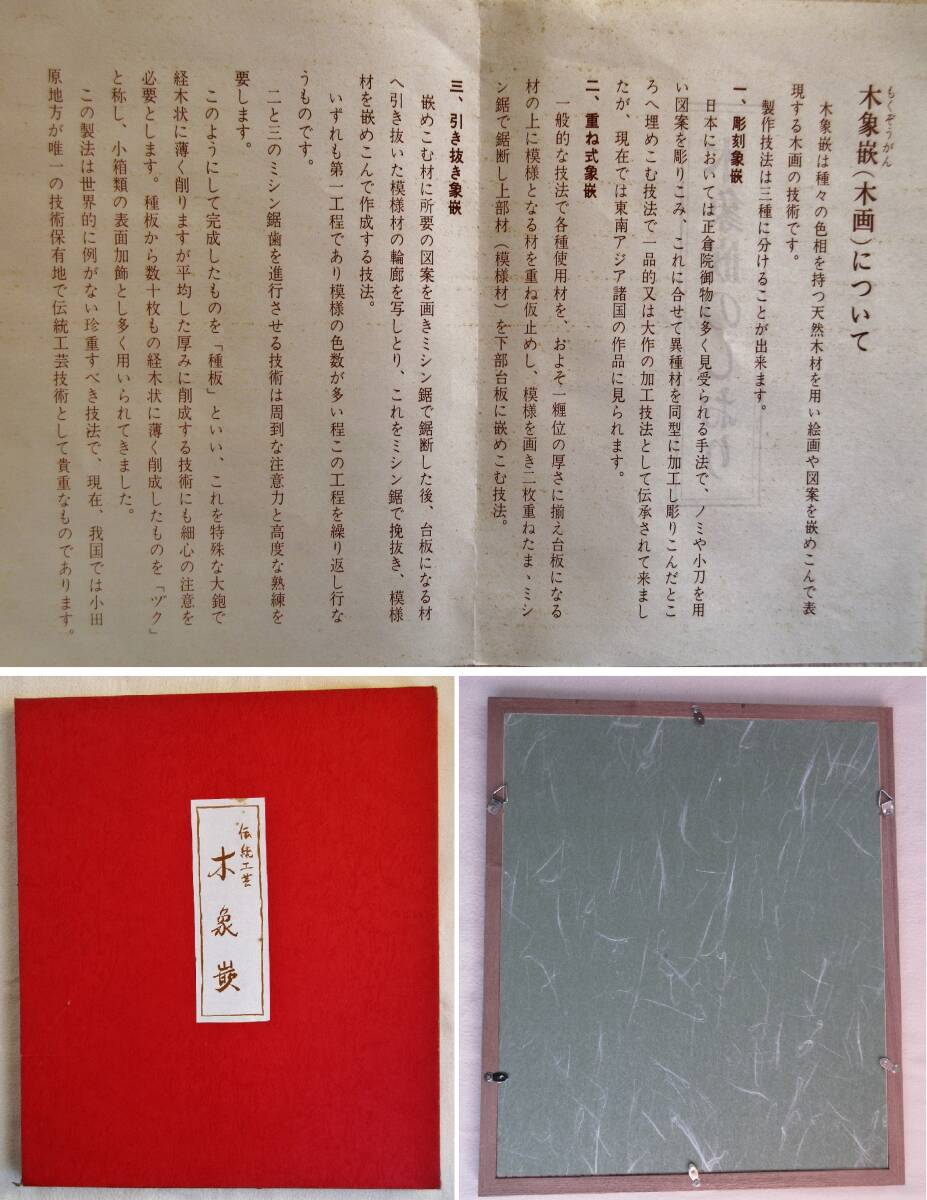 木象嵌(木画)について
もくぞうがん
木象嵌は種々の色相を持つ天然木材を用い絵画や図案を嵌めこんで表
現する木画の技術です。
製作技法は三種に分けることが出来ます。
一、彫刻象嵌
日本においては正倉院御物に多く見受られる手法で、ノミや小刀を用
い図案を彫りこみ、これに合せて異種材を同型に加工し彫りこんだとこ
ろへ埋めこむ技法で一品的又は大作の加工技法として伝承されて来まし
たが、現在では東南アジア諸国の作品に見られます。
二、重ね式象嵌
一般的な技法で各種使用材を、およそ一糎位の厚さに揃え台板になる
材の上に模様となる材を重ね仮止めし、模様を画き二枚重ねたまゝミシ
ン鋸で鋸断し上部材(模様材)を下部台板に嵌めこむ技法。
三、引き抜き象嵌
嵌めこむ材に所要の図案を画きミシン鋸で鋸断した後、台板になる材
へ引き抜いた模様材の輪廊を写しとり、これをミシン鋸で挽抜き、模様
材を嵌めこんで作成する技法。
いずれも第一工程であり模様の色数が多い程この工程を繰り返し行な
うものです。
二と三のミシン鋸歯を進行させる技術は周到な注意力と高度な熟練を
要します。
このようにして完成したものを「種板」といい、これを特殊な大鉋で
経木状に薄く削りますが平均した厚みに削成する技術にも細心の注意を
必要とします。種板から数十枚もの経木状に薄く削成したものを「ヅク」
と称し、小箱類の表面加飾とし多く用いられてきました。
この製法は世界的に例がない珍重すべき技法で、現在、我国では小田
原地方が唯一の技術保有地で伝統工芸技術として貴重なものであります。
伝統工芸
木象嵌